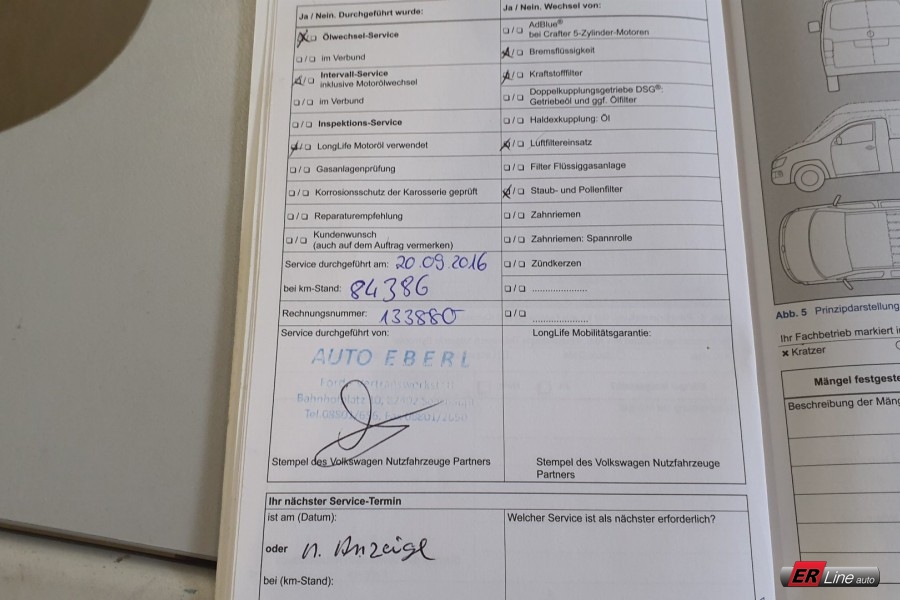 Ja / Nein. Durchgeführt wurde:
☒/☐ Ölwechsel-Service
☐/☐ im Verbund
☒/☐ Intervall-Service
inklusive Motorölwechsel
☐/☐ im Verbund
☐/☐ Inspektions-Service
☒/☐ LongLife Motoröl verwendet
☐/☐ Gasanlagenprüfung
☐/☐ Korrosionsschutz der Karosserie geprüft
☐/☐ Reparaturempfehlung
☐/☐ Kundenwunsch
(auch auf dem Auftrag vermerken)
Service durchgeführt am: 20.09.2016
bei km-Stand: 84386
Rechnungsnummer: 133880
Service durchgeführt von:
AUTO EBERL
Stempel des Volkswagen Nutzfahrzeuge Partners
Ja / Nein. Wechsel von:
☐/☐ AdBlue®
bei Crafter 5-Zylinder-Motoren
☒/☐ Bremsflüssigkeit
☒/☐ Kraftstofffilter
☐/☐ Doppelkupplungsgetriebe DSG®:
Getriebeöl und ggf. Ölfilter
☐/☐ Haldexkupplung: Öl
☒/☐ Luftfiltereinsatz
☐/☐ Filter Flüssiggasanlage
☒/☐ Staub- und Pollenfilter
☐/☐ Zahnriemen
☐/☐ Zahnriemen: Spannrolle
☐/☐ Zündkerzen
☐/☐ .....................
☐/☐ .....................
LongLife Mobilitätsgarantie:
Stempel des Volkswagen Nutzfahrzeuge
Partners
Ihr nächster Service-Termin
ist am (Datum):
oder n. Anzeige
bei (km-Stand):
Welcher Service ist als nächster erforderlich?
Abb. 5 Prinzipdarstellung
Ihr Fachbetrieb markiert
× Kratzer
Mängel festgeste
Beschreibung der Mäng
ER Line auto